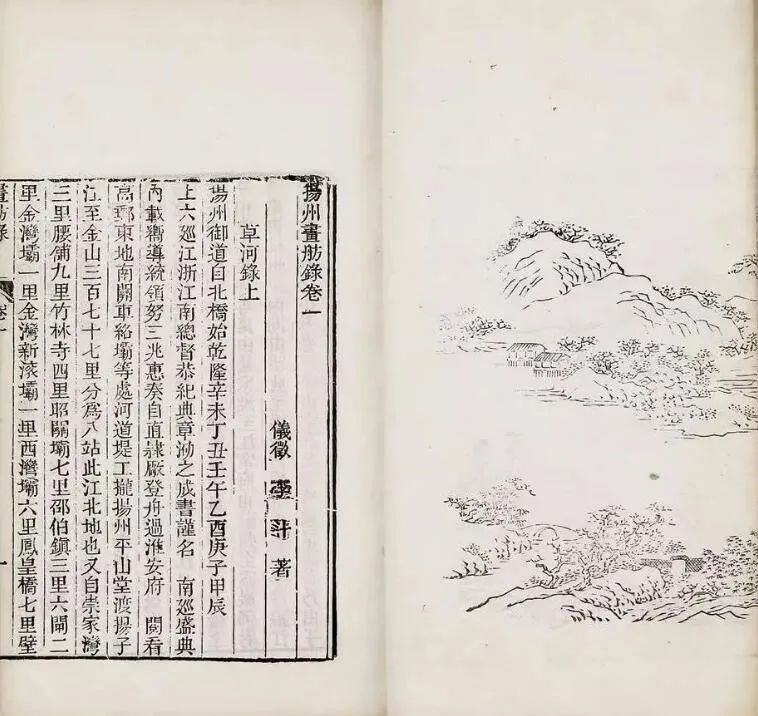 揚州畫舫錄卷一
儀徵 李斗 著
草河錄上
揚州御道自北橋始乾隆辛未丁丑壬午乙酉庚子甲辰
上六巡江浙江南總督恭紀典章泐之成書謹名 南巡盛典
內載嚮導統領努三兆惠奏自直隷厰登舟過淮安府 閱看
高郵東地南關車絡壩等處河道堤工攏揚州平山堂渡揚子
江至金山三百七十七里分爲八站此江北地也又自崇家灣
三里腰舖九里竹林寺四里昭關壩七里邵伯鎭三里六閘二
里金灣壩一里金灣新滚壩一里西灣壩六里鳳皇橋七里壁
畫舫錄 卷一 一